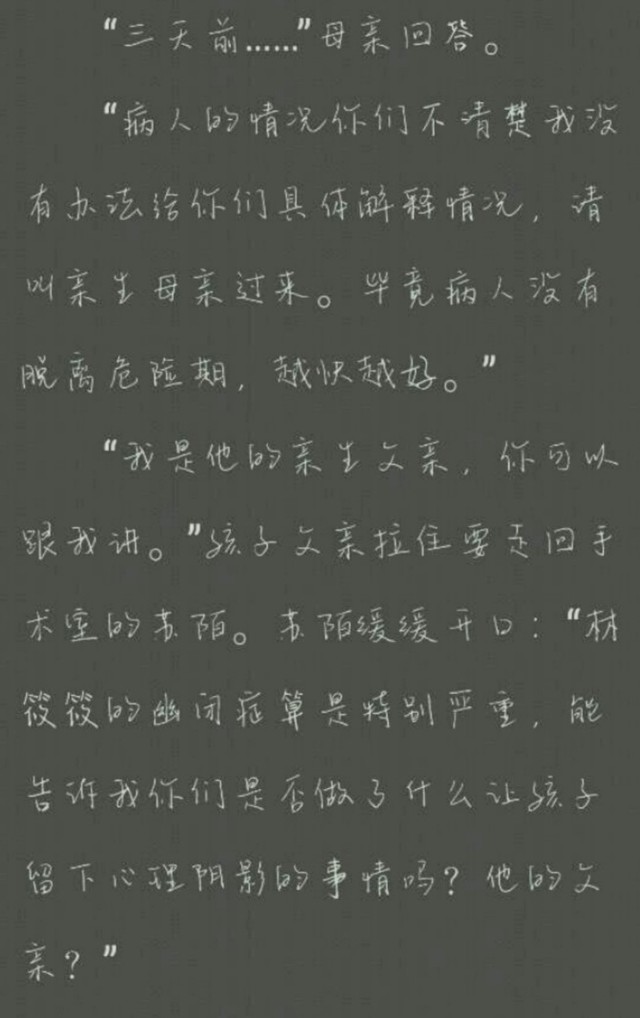 “三天前……”母亲回答。
“病人的情况你们不清楚我没
有办法给你们具体解释情况，请
叫亲生母亲过来。毕竟病人没有
脱离危险期，越快越好。”
“我是他的亲生父亲，你可以
跟我讲。”孩子父亲拉住要走回手
术室的苏陌。苏陌缓缓开口：“林
筱筱的幽闭症算是特别严重，能
告诉我你们是否做了什么让孩子
留下心理阴影的事情吗？他的父
亲？”